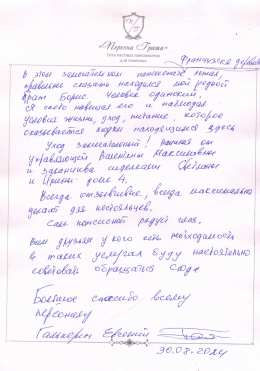 «Портал Грааль»
Сеть частных пансионатов
для пожилых
Французская деревня
В этом замечательном пансионате лежал,
правильно сказать находился мой родной
брат Борис, человек одинокий.
Я часто навещал его и наблюдал
условия жизни, уход, питание, которое
оказывается людям находящимся здесь
Уход замечательный! Начиная от
управляющей Валентины Максимовны
и заканчивая сиделками Светланы
и Ирины доме 4.
Всегда отзывчивые, всегда максимально
делают для постояльцев.
Сам пансионат радует глаз.
Всем друзьям у кого есть необходимость
в таких услугах буду настоятельно
советовать обращаться сюда
Большое спасибо всему
персоналу
Гальперин Евгений
30.08.2024